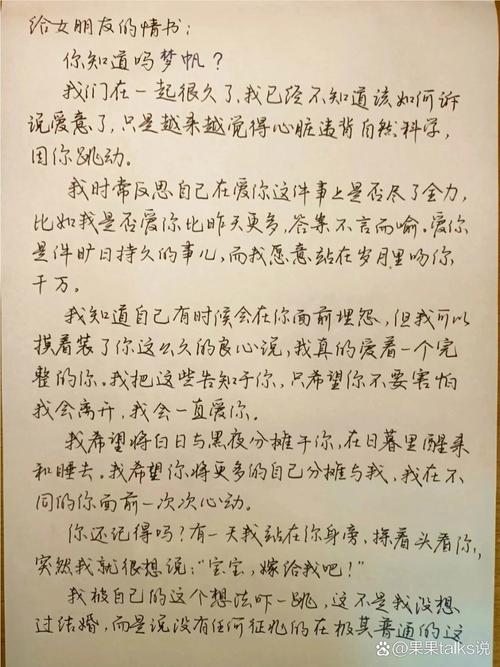 给女朋友的情书：
你知道吗梦帆？
我们在一起很久了，我已经不知道该如何诉
说爱意了，只是越来越觉得心脏违背自然科学，
因你跳动。
我时常反思自己在爱你这件事上是否尽了全力，
比如我是否爱你比昨天更多，答案不言而喻。爱你
是件旷日持久的事儿，而我愿意站在岁月里吻你
千万。
我知道自己有时候会在你面前埋怨，但我可以
摸着装了你这么久的良心说，我真的爱着一个完
整的你。我把这些告知于你，只希望你不要害怕
我会离开，我会一直爱你。
我希望将白日与黑夜分摊于你，在日暮里醒来
和睡去。我希望你将更多的自己分摊与我，我在不
同的你面前一次次心动。
你还记得吗？有一天我站在你身旁，探着头看你，
突然我就很想说：“宝宝，嫁给我吧！”
我被自己的这个想法吓一跳，这不是我没想
过结婚，而是说没有任何征兆的在极其普通的这
@果果talks说